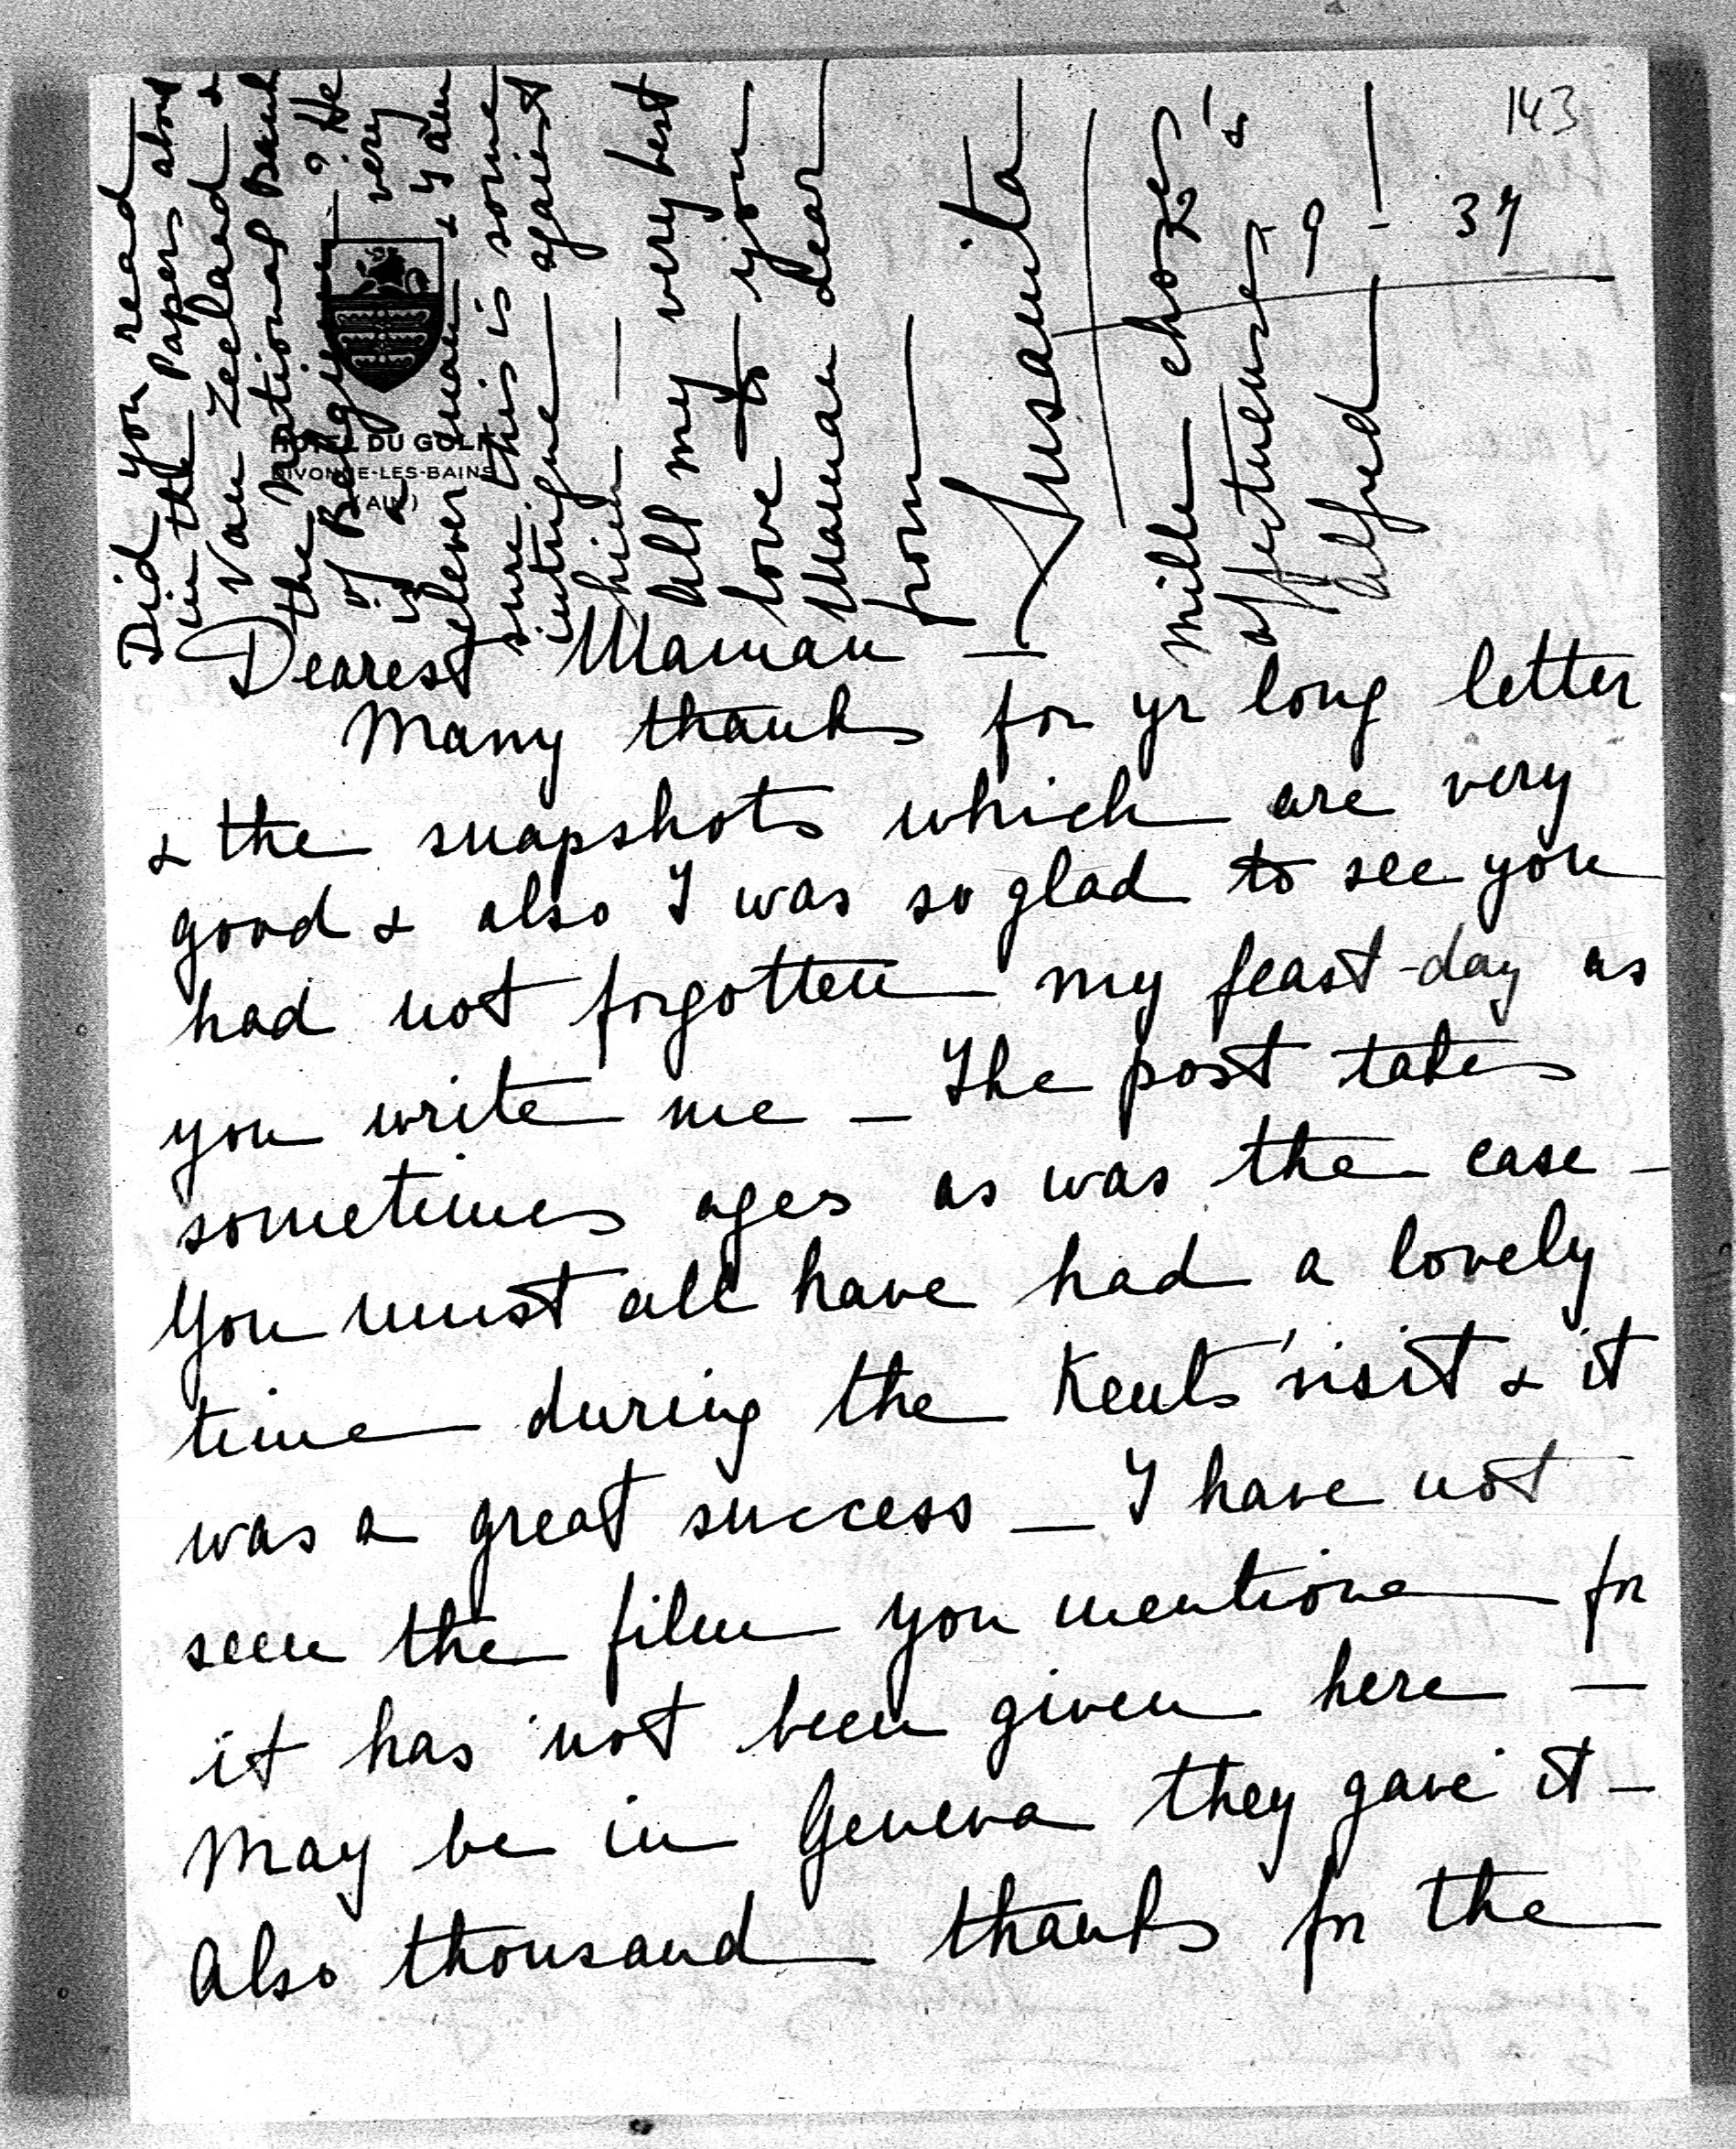 143
2 - 9 - 37
HOTEL DU GOLF
DIVONNE-LES-BAINS
(AIN)
Dearest Maman —
Many thanks for yr long letter
& the snapshots which are very
good & also I was so glad to see you
had not forgotten my feast-day as
you write me — The post takes
sometimes ages as was the case —
You must all have had a lovely
time during the Kents' visit & it
was a great success — I have not
seen the film you mentione for
it has not been given here —
May be in Geneva they gave it —
Also thousand thanks for the
Did you read
in the papers about
Van Zeeland &
the National Bank
of Belgium? He
is a very
clever man & I am
sure this is some
intrigue against
him —
All my very best
love to you
Maman dear
from
Susanita
Mille choses
affectueuses
Alfred